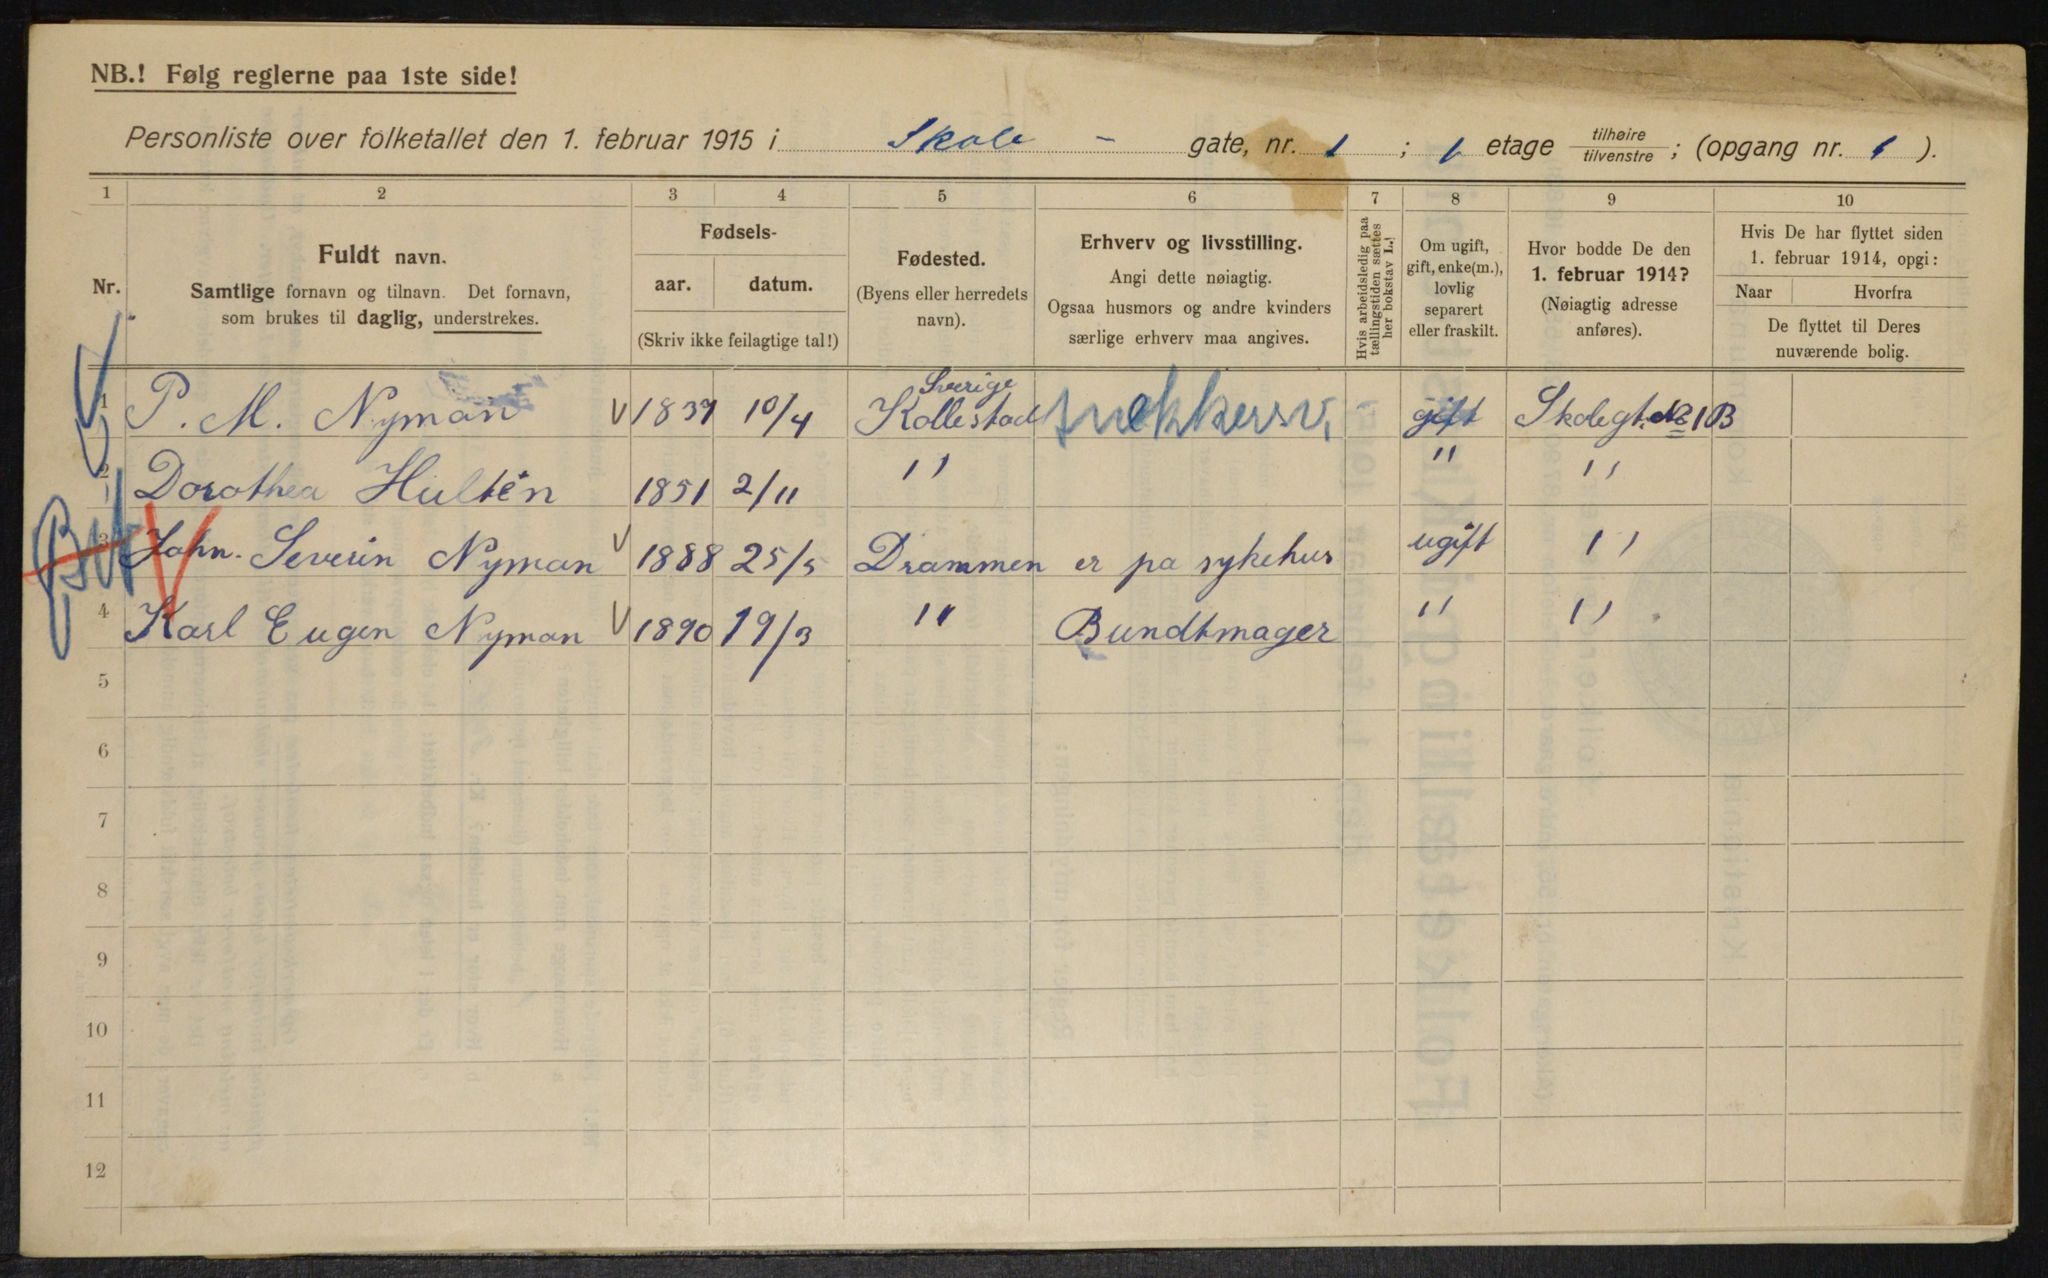 NB.! Følg reglerne paa 1ste side!
Personliste over folketallet den 1. februar 1915 i Skole - gate, nr. 1 ; 1 etage tilhøire tilvenstre ; (opgang nr. 1 ).
1 2 3 4 5 6 7 8 9 10
Nr.
Fuldt navn.
Samtlige fornavn og tilnavn. Det fornavn,
som brukes til daglig, understrekes.
Fødsels-
aar. datum.
(Skriv ikke feilagtige tal!)
Fødested.
(Byens eller herredets
navn).
Erhverv og livsstilling.
Angi dette nøiagtig.
Ogsaa husmors og andre kvinders
særlige erhverv maa angives.
Hvis arbeidsledig paa
tællingstiden sættes
her bokstav L.!
Om ugift,
gift, enke(m.),
lovlig
separert
eller fraskilt.
Hvor bodde De den
1. februar 1914?
(Nøiagtig adresse
anføres).
Hvis De har flyttet siden
1. februar 1914, opgi:
Naar Hvorfra
De flyttet til Deres
nuværende bolig.
1 P. M. Nyman 1837 10/4 Sverige Kollestad gift Skolegt. No 1 B
2 Dorothea Hultén 1851 2/11 " " "
3 John. Severin Nyman 1888 25/5 Drammen er pa sykehus ugift "
4 Karl Eugen Nyman 1890 19/3 " Bundtmager " "
5
6
7
8
9
10
11
12